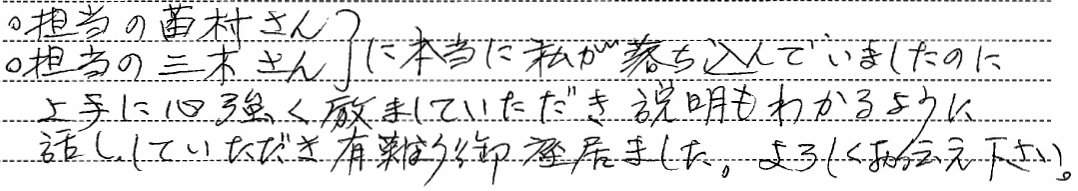 ○担当の苗村さん
○担当の三木さん}に本当に私が落ち込んでいましたのに
上手に心強く励ましていただき説明もわかるように
話していただき有難う御座居ました。よろしくお伝え下さい。